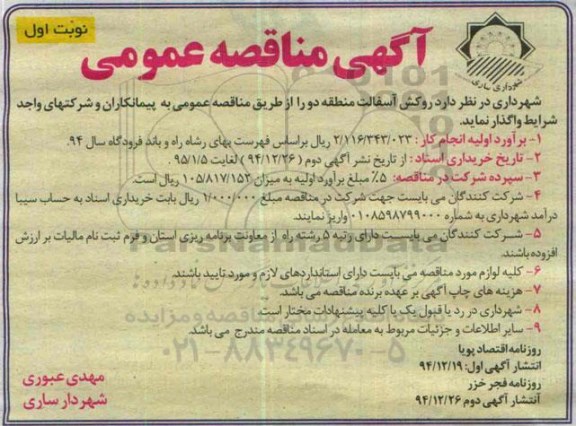 نوبت اول
آگهی مناقصه عمومی
شهرداری ساری
شهرداری در نظر دارد روکش آسفالت منطقه دو را از طریق مناقصه عمومی به پیمانکاران و شرکتهای واجد
شرایط واگذار نماید.
۱- برآورد اولیه انجام کار : ۲/۱۱۶/۳۴۳/۰۲۳ ریال براساس فهرست بهای رشته راه و باند فرودگاه سال ۹۴.
۲- تاریخ خریداری اسناد : از تاریخ نشر آگهی دوم ( ۹۴/۱۲/۲۶ ) لغایت ۹۵/۱/۵ .
۳- سپرده شرکت در مناقصه: ۵٪ مبلغ برآورد اولیه به میزان ۱۰۵/۸۱۷/۱۵۲ ریال است.
۴- شرکت کنندگان می بایست جهت شرکت در مناقصه مبلغ ۱/۰۰۰/۰۰۰ ریال بابت خریداری اسناد به حساب سیبا
درآمد شهرداری به شماره ۰۱۰۸۵۹۸۷۹۹۰۰۰ واریز نمایند.
۵- شرکت کنندگان می بایست دارای رتبه ۵ رشته راه از معاونت برنامه ریزی استان و فرم ثبت نام مالیات بر ارزش
افزوده باشند.
۶- کلیه لوازم مورد مناقصه می بایست دارای استانداردهای لازم و مورد تایید باشند.
۷- هزینه های چاپ آگهی بر عهده برنده مناقصه می باشد.
۸- شهرداری در رد یا قبول یک یا کلیه پیشنهادات مختار است.
۹- سایر اطلاعات و جزئیات مربوط به معامله در اسناد مناقصه مندرج می باشد.
ParsNamadData
۰۲۱-۸۸۳۴۹۶۷۰-۵
روزنامه اقتصاد پویا
انتشار آگهی اول: ۹۴/۱۲/۱۹
روزنامه فجر خزر
انتشار آگهی دوم ۹۴/۱۲/۲۶
مهدی عبوری
شهردار ساری